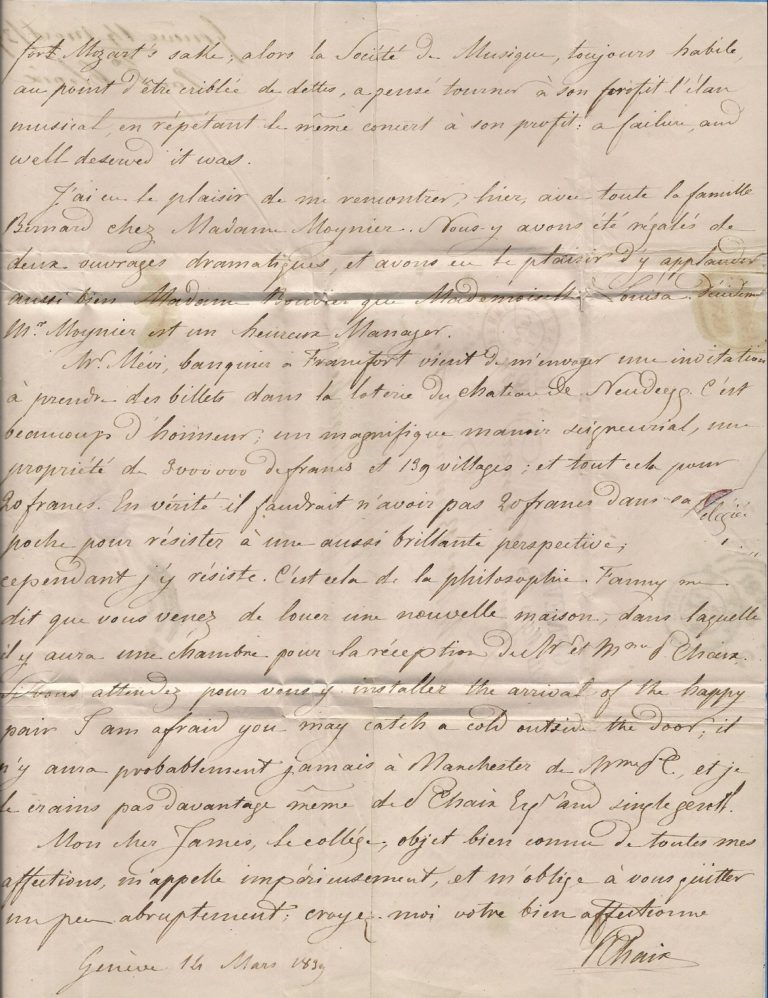 fort Mozart's salle; alors la Société de Musique, toujours habile
au point d'être criblée de dettes, a pensé tourner à son profit l'élan
musical, en répétant le même concert à son profit: a failure, and
well deserved it was.
J'ai eu le plaisir de me rencontrer, hier, avec toute la famille
Bernard chez Madame Moynier. Nous y avons été régalés de
deux ouvrages dramatiques, et avons eu le plaisir d'y applaudir
aussi bien Madame Bouvier que Mademoiselle Louisa.
Mr Moynier est un heureux Manager.
Mr Mévi, banquier à Francfort vient de m'envoyer une invitation
à prendre des billets dans la loterie du chateau de Neudegg. C'est
beaucoup d'honneur; un magnifique manoir seigneurial, une
propriété de 3000000 de francs et 139 villages; et tout cela pour
20 francs. En vérité il faudrait n'avoir pas 20 francs dans sa
poche pour résister à une aussi brillante perspective;
cependant j'y résiste. C'est cela de la philosophie. Fanny me
dit que vous venez de louer une nouvelle maison, dans laquelle
il y aura une chambre pour la réception de Mr et Mme P Chaix.
Si vous attendez pour vous y installer the arrival of the happy
pair I am afraid you may catch a cold outside the door; il
n'y aura probablement jamais à Manchester de Mme P C, et je
le crains pas davantage même de P Chaix Esqr and single gentl.
Mon cher James, le collége, objet bien connu de toutes mes
affections, m'appelle impérieusement, et m'oblige à vous quitter
un peu abruptement; croyez-moi votre bien affectionné
P Chaix
Genève 14 Mars 1839